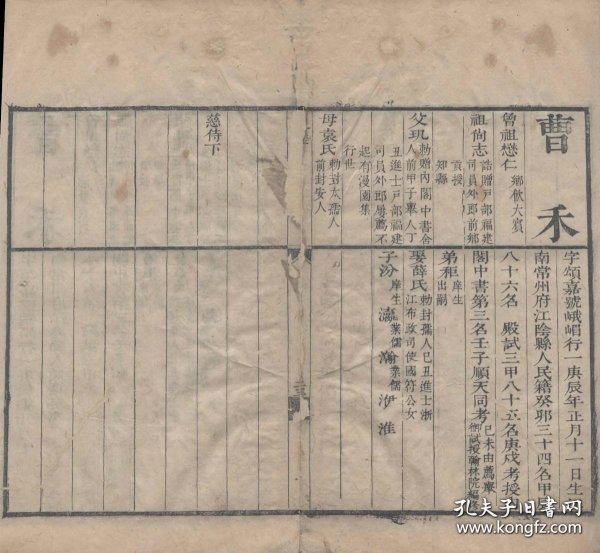 曹禾
字頌嘉號峨嵋行一庚辰年正月十一日生
南常州府江陰縣人民籍癸卯三十四名甲
八十六名 殿試三甲八十五名庚戌考授
閣中書第三名壬子順天同考己未由薦舉
御試授翰林院編
曾祖懋仁 鄉飲大賓
祖尚志 誥贈戶部福建
司員外郎前鄉
貢授
知縣
父璣 勅贈內閣中書舍
人前甲子舉人丁
丑進士戶部福建
司員外郎屢薦不
起有漫園集
行世
母袁氏 勅封太孺人
前封安人
慈侍下
弟秬 庠生
出嗣
娶薛氏 勅封孺人己丑進士浙
江布政司使國符公女
子汾 庠生 瀛 業儒 瀚 業儒 伊 淮
孔夫子旧书网
www.kongfz.com